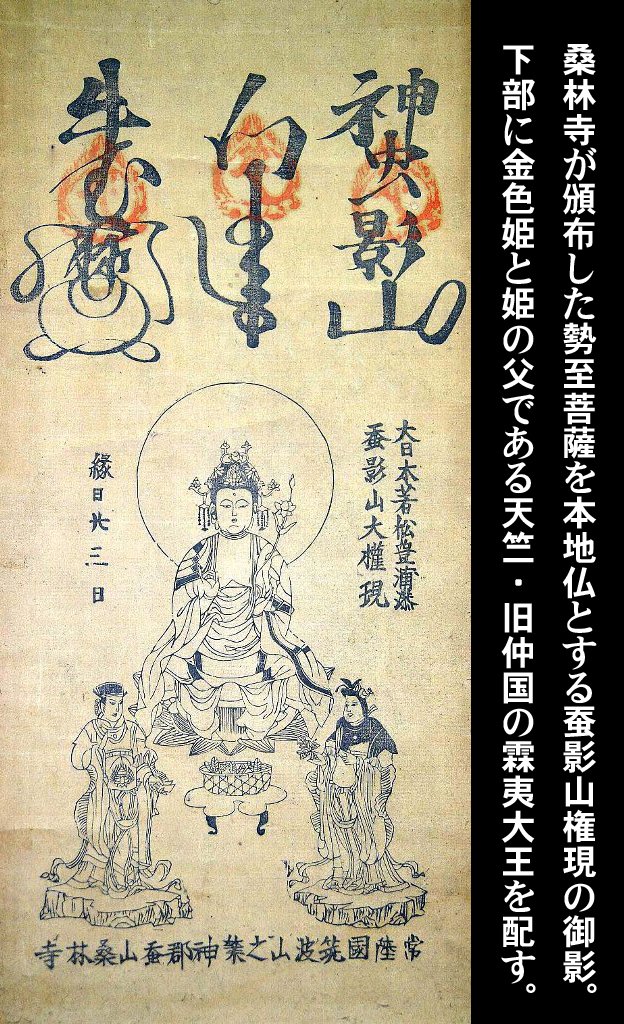 桑林寺が頒布した勢至菩薩を本地仏とする蚕影山権現の御影。
下部に金色姫と姫の父である天竺・旧仲国の霖夷大王を配す。
影山
大日本著松豊浦
蚕影山大權現
緣日廿三日
常陸國筑波山之 神郡蚕山桑林寺